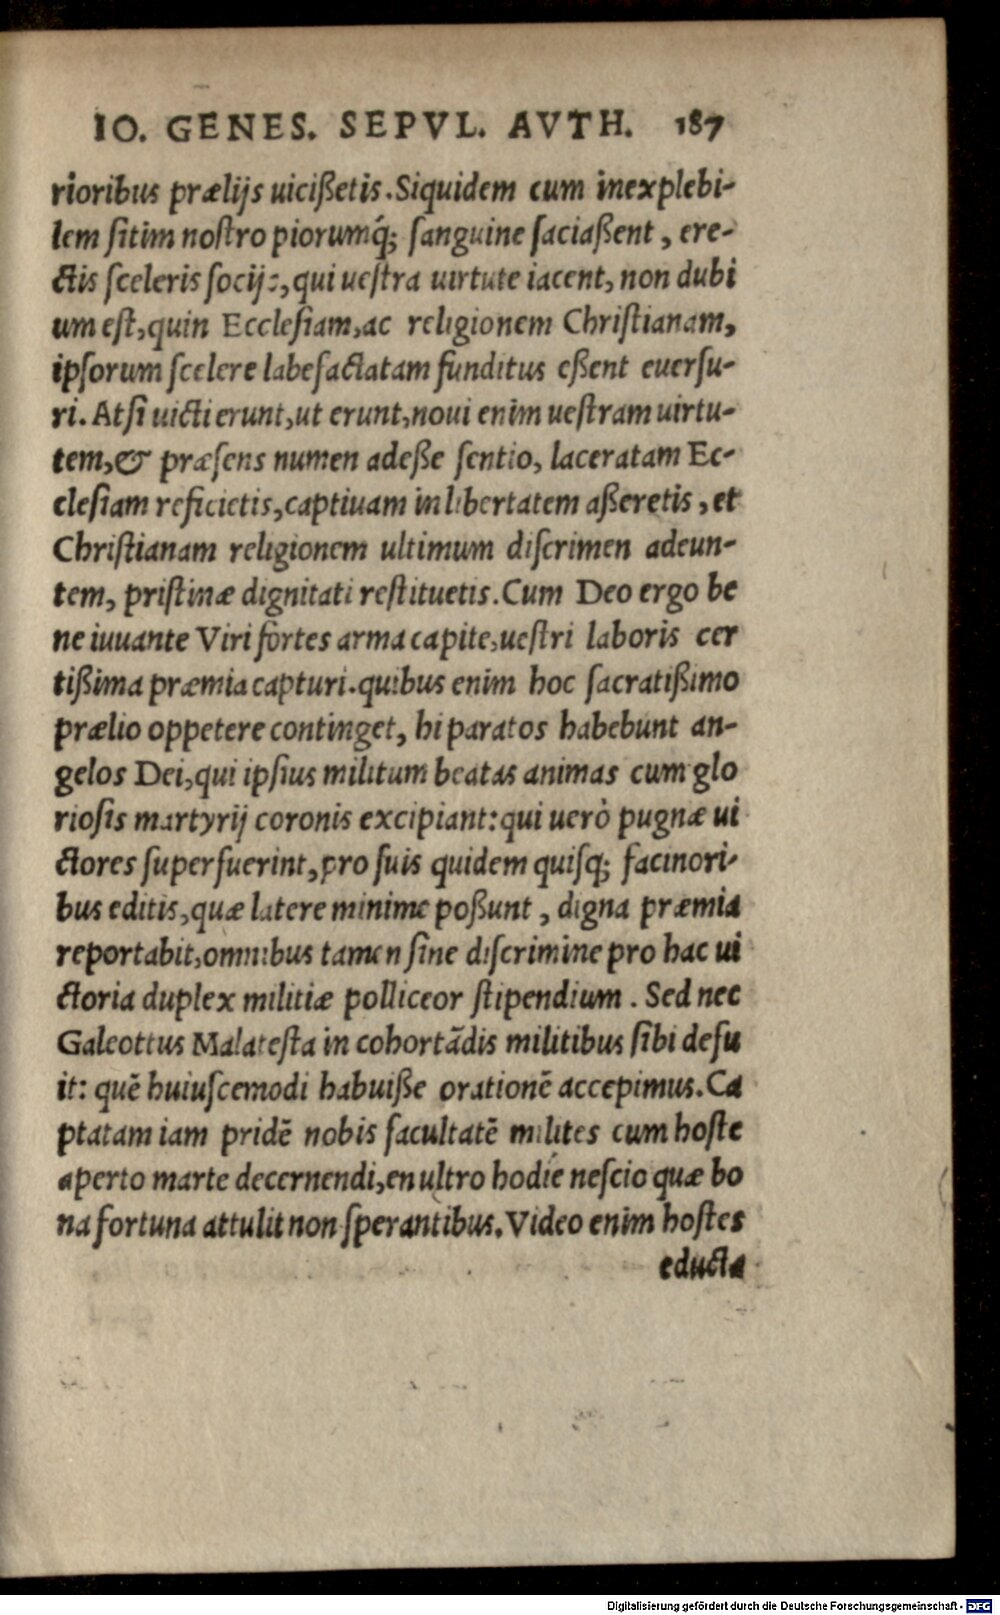 IO. GENES. SEPVL. AVTH. 187
rioribus prælijs uicißetis. Siquidem cum inexplebi-
lem ſitim noſtro piorumq́; ſanguine ſaciaßent, ere-
ctis ſceleris ſocijs, qui ueſtra uirtute iacent, non dubi
um eſt, quin Eccleſiam, ac religionem Chriſtianam,
ipſorum ſcelere labefactatam funditus eßent euerſu-
ri. At ſi uicti erunt, ut erunt, noui enim ueſtram uirtu-
tem, & præſens numen adeße ſentio, laceratam Ec-
cleſiam reficietis, captiuam in libertatem aßeretis, et
Chriſtianam religionem ultimum diſcrimen adeun-
tem, priſtinæ dignitati reſtituetis. Cum Deo ergo be
ne iuuante Viri fortes arma capite, ueſtri laboris cer
tißima præmia capturi. quibus enim hoc ſacratißimo
prælio oppetere continget, hi paratos habebunt an-
gelos Dei, qui ipſius militum beatas animas cum glo
rioſis martyrij coronis excipiant: qui uerò pugnæ ui
ctores ſuperfuerint, pro ſuis quidem quiſq; facinori-
bus editis, quæ latere minime poßunt, digna præmia
reportabit, omnibus tamen ſine diſcrimine pro hac ui
ctoria duplex militiæ polliceor ſtipendium. Sed nec
Galeottus Malateſta in cohortãdis militibus ſibi defu
it: quẽ huiuſcemodi habuiße orationẽ accepimus. Ca
ptatam iam pridẽ nobis facultatẽ milites cum hoſte
aperto marte decernendi, en ultro hodie neſcio quæ bo
na fortuna attulit non ſperantibus. Video enim hoſtes
educta
Digitalisierung gefördert durch die Deutsche Forschungsgemeinschaft - DFG